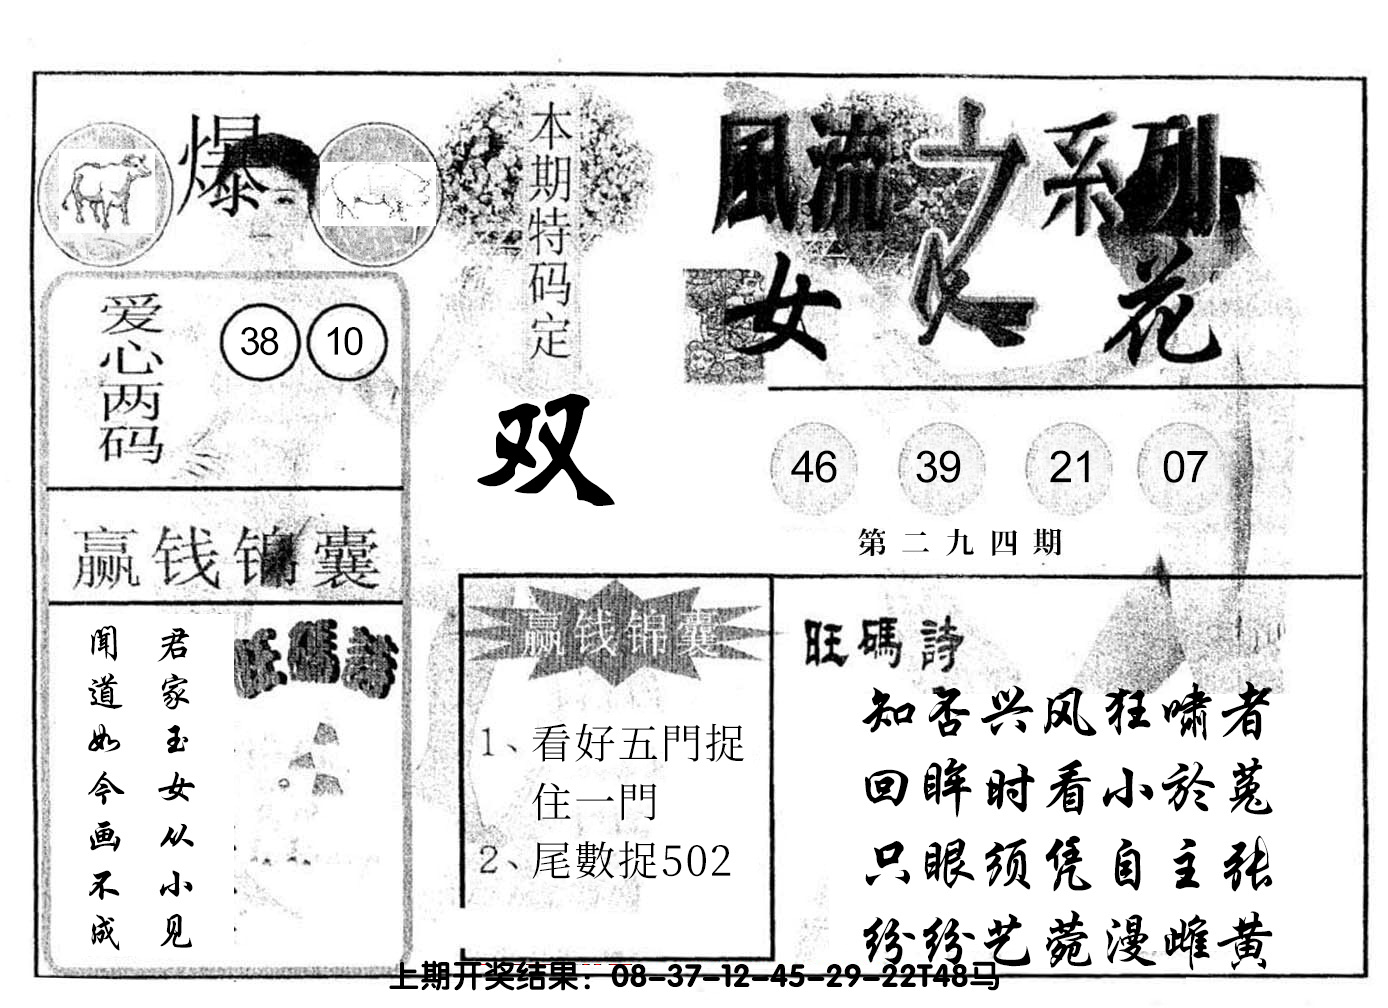 爆
本期特码定
双
風流之系列
女人花
爱心两码
38 10
46 39 21 07
第二九四期
赢钱锦囊
旺碼詩
君家玉女从小见
闻道如今画不成
赢钱锦囊
1、看好五門捉
住一門
2、尾數捉502
旺碼詩
知否兴风狂啸者
回眸时看小於菟
只眼须凭自主张
纷纷艺苑漫雌黄
上期开奖结果：08-37-12-45-29-22T48马